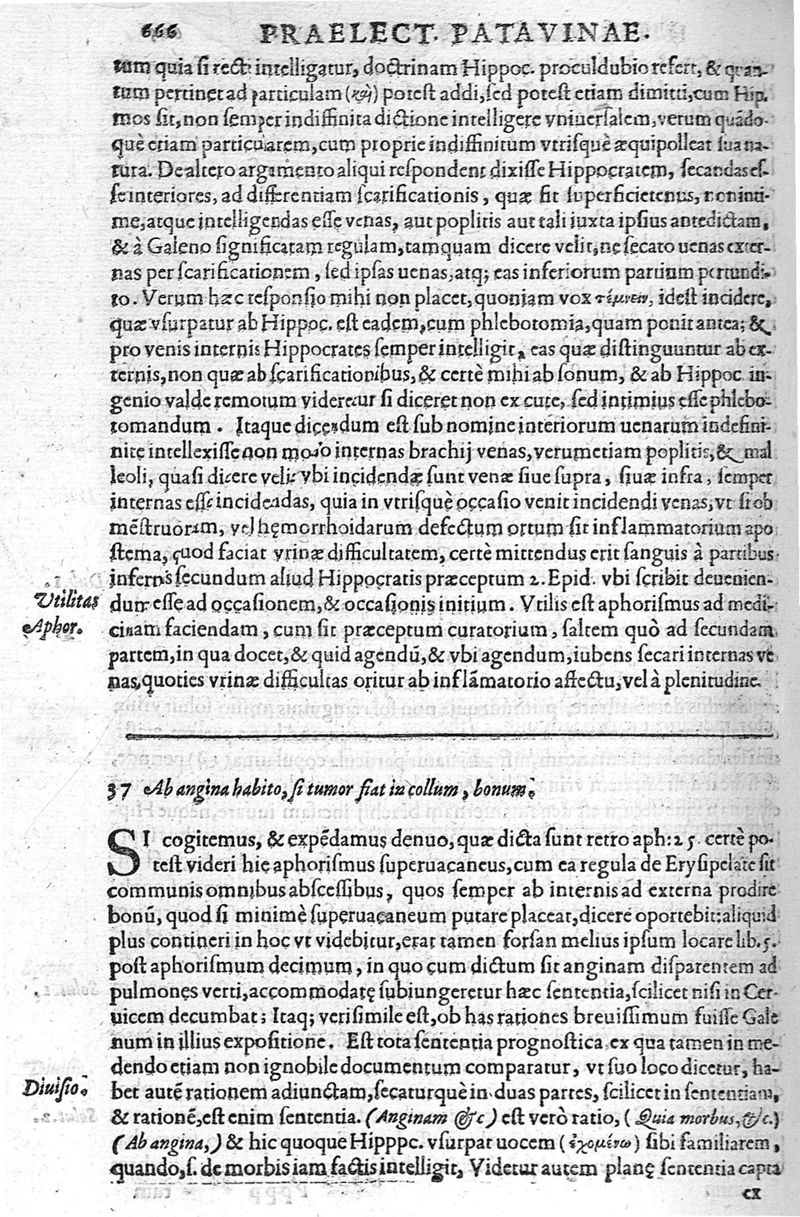 666 PRAELECT. PATAVINAE.
tum quia si rectè intelligatur, doctrinam Hippoc. proculdubio refert, & quan-
tum pertinet ad particulam (καὶ) potest addi, sed potest etiam dimitti, cum Hip.
mos sit, non semper indiffinita dictione intelligere vniuersalem, verum quãdo-
què etiam particularem, cum proprie indiffinitum vtrisquè æquipolleat sua na-
tura. De altero argumento aliqui respondent dixisse Hippocratem, secandas es-
se interiores, ad differentiam scarificationis, quæ fit superficietenus, non inti-
me, atque intelligendas esse venas, aut poplitis aut tali iuxta ipsius antedictam,
& à Galeno significatam regulam, tamquam dicere velit, ne secato uenas exter-
nas per scarificationem, sed ipsas uenas, atq; eas inferiorum partium pertundi-
to. Verum hæc responsio mihi non placet, quoniam vox τέμνειν, idest incidere,
quæ vsurpatur ab Hippoc. est eadem, cum phlebotomia, quam ponit antea; &
pro venis internis Hippocrates semper intelligit, eas quæ distinguuntur ab ex-
ternis, non quæ ab scarificationibus, & certè mihi ab sonum, & ab Hippoc. in-
genio valde remotum videretur si diceret non ex cute, sed intimius esse phlebo-
tomandum. Itaque dicendum est sub nomine interiorum uenarum indefini-
nite intellexisse non modo internas brachij venas, verumetiam poplitis, & mal
leoli, quasi dicere velit vbi incidendæ sunt venæ siue supra, siuæ infra, semper
internas esse incidendas, quia in vtrisquè occasio venit incidendi venas, vt si ob
mẽstruorum, vel hęmorrhoidarum defectum ortum sit inflammatorium apo
stema, quod faciat vrinæ difficultatem, certè mittendus erit sanguis à partibus
infernis secundum aliud Hippocratis præceptum 2. Epid. vbi scribit deuenien-
Vtilitas Aphor.
dum esse ad occasionem, & occasionis initium. Vtilis est aphorismus ad medi-
cinam faciendam, cum sit præceptum curatorium, saltem quò ad secundam
partem, in qua docet, & quid agendũ, & vbi agendum, iubens secari internas ve
nas, quoties vrinæ difficultas oritur ab inflãmatorio affectu, vel à plenitudine.
37 Ab angina habito, si tumor fiat in collum, bonum.
SI cogitemus, & expẽdamus denuo, quæ dicta sunt retro aph: 25. certè po-
test videri hic aphorismus superuacaneus, cum ea regula de Erysipelate sit
communis omnibus abscessibus, quos semper ab internis ad externa prodire
bonũ, quod si minimè superuacaneum putare placeat, dicere oportebit: aliquid
plus contineri in hoc vt videbitur, erat tamen forsan melius ipsum locare lib. 5.
post aphorismum decimum, in quo cum dictum sit anginam disparentem ad
pulmones verti, accommodatę subiungeretur hæc sententia, scilicet nisi in Cer-
uicem decumbat; Itaq; verisimile est, ob has rationes breuissimum fuisse Gale
num in illius expositione. Est tota sententia prognostica ex qua tamen in me-
dendo etiam non ignobile documentum comparatur, vt suo loco dicetur, ha-
Diuisio.
bet autẽ rationem adiunctam, secaturquè in duas partes, scilicet in sententiam,
& rationẽ, est enim sententia. (Anginam &c) est verò ratio, (Quia morbus, &c.)
(Ab angina,) & hic quoque Hipppc. vsurpat uocem (ἐχομένω) sibi familiarem,
quando, s. de morbis iam factis intelligit, Videtur autem planę sententia capta
ex